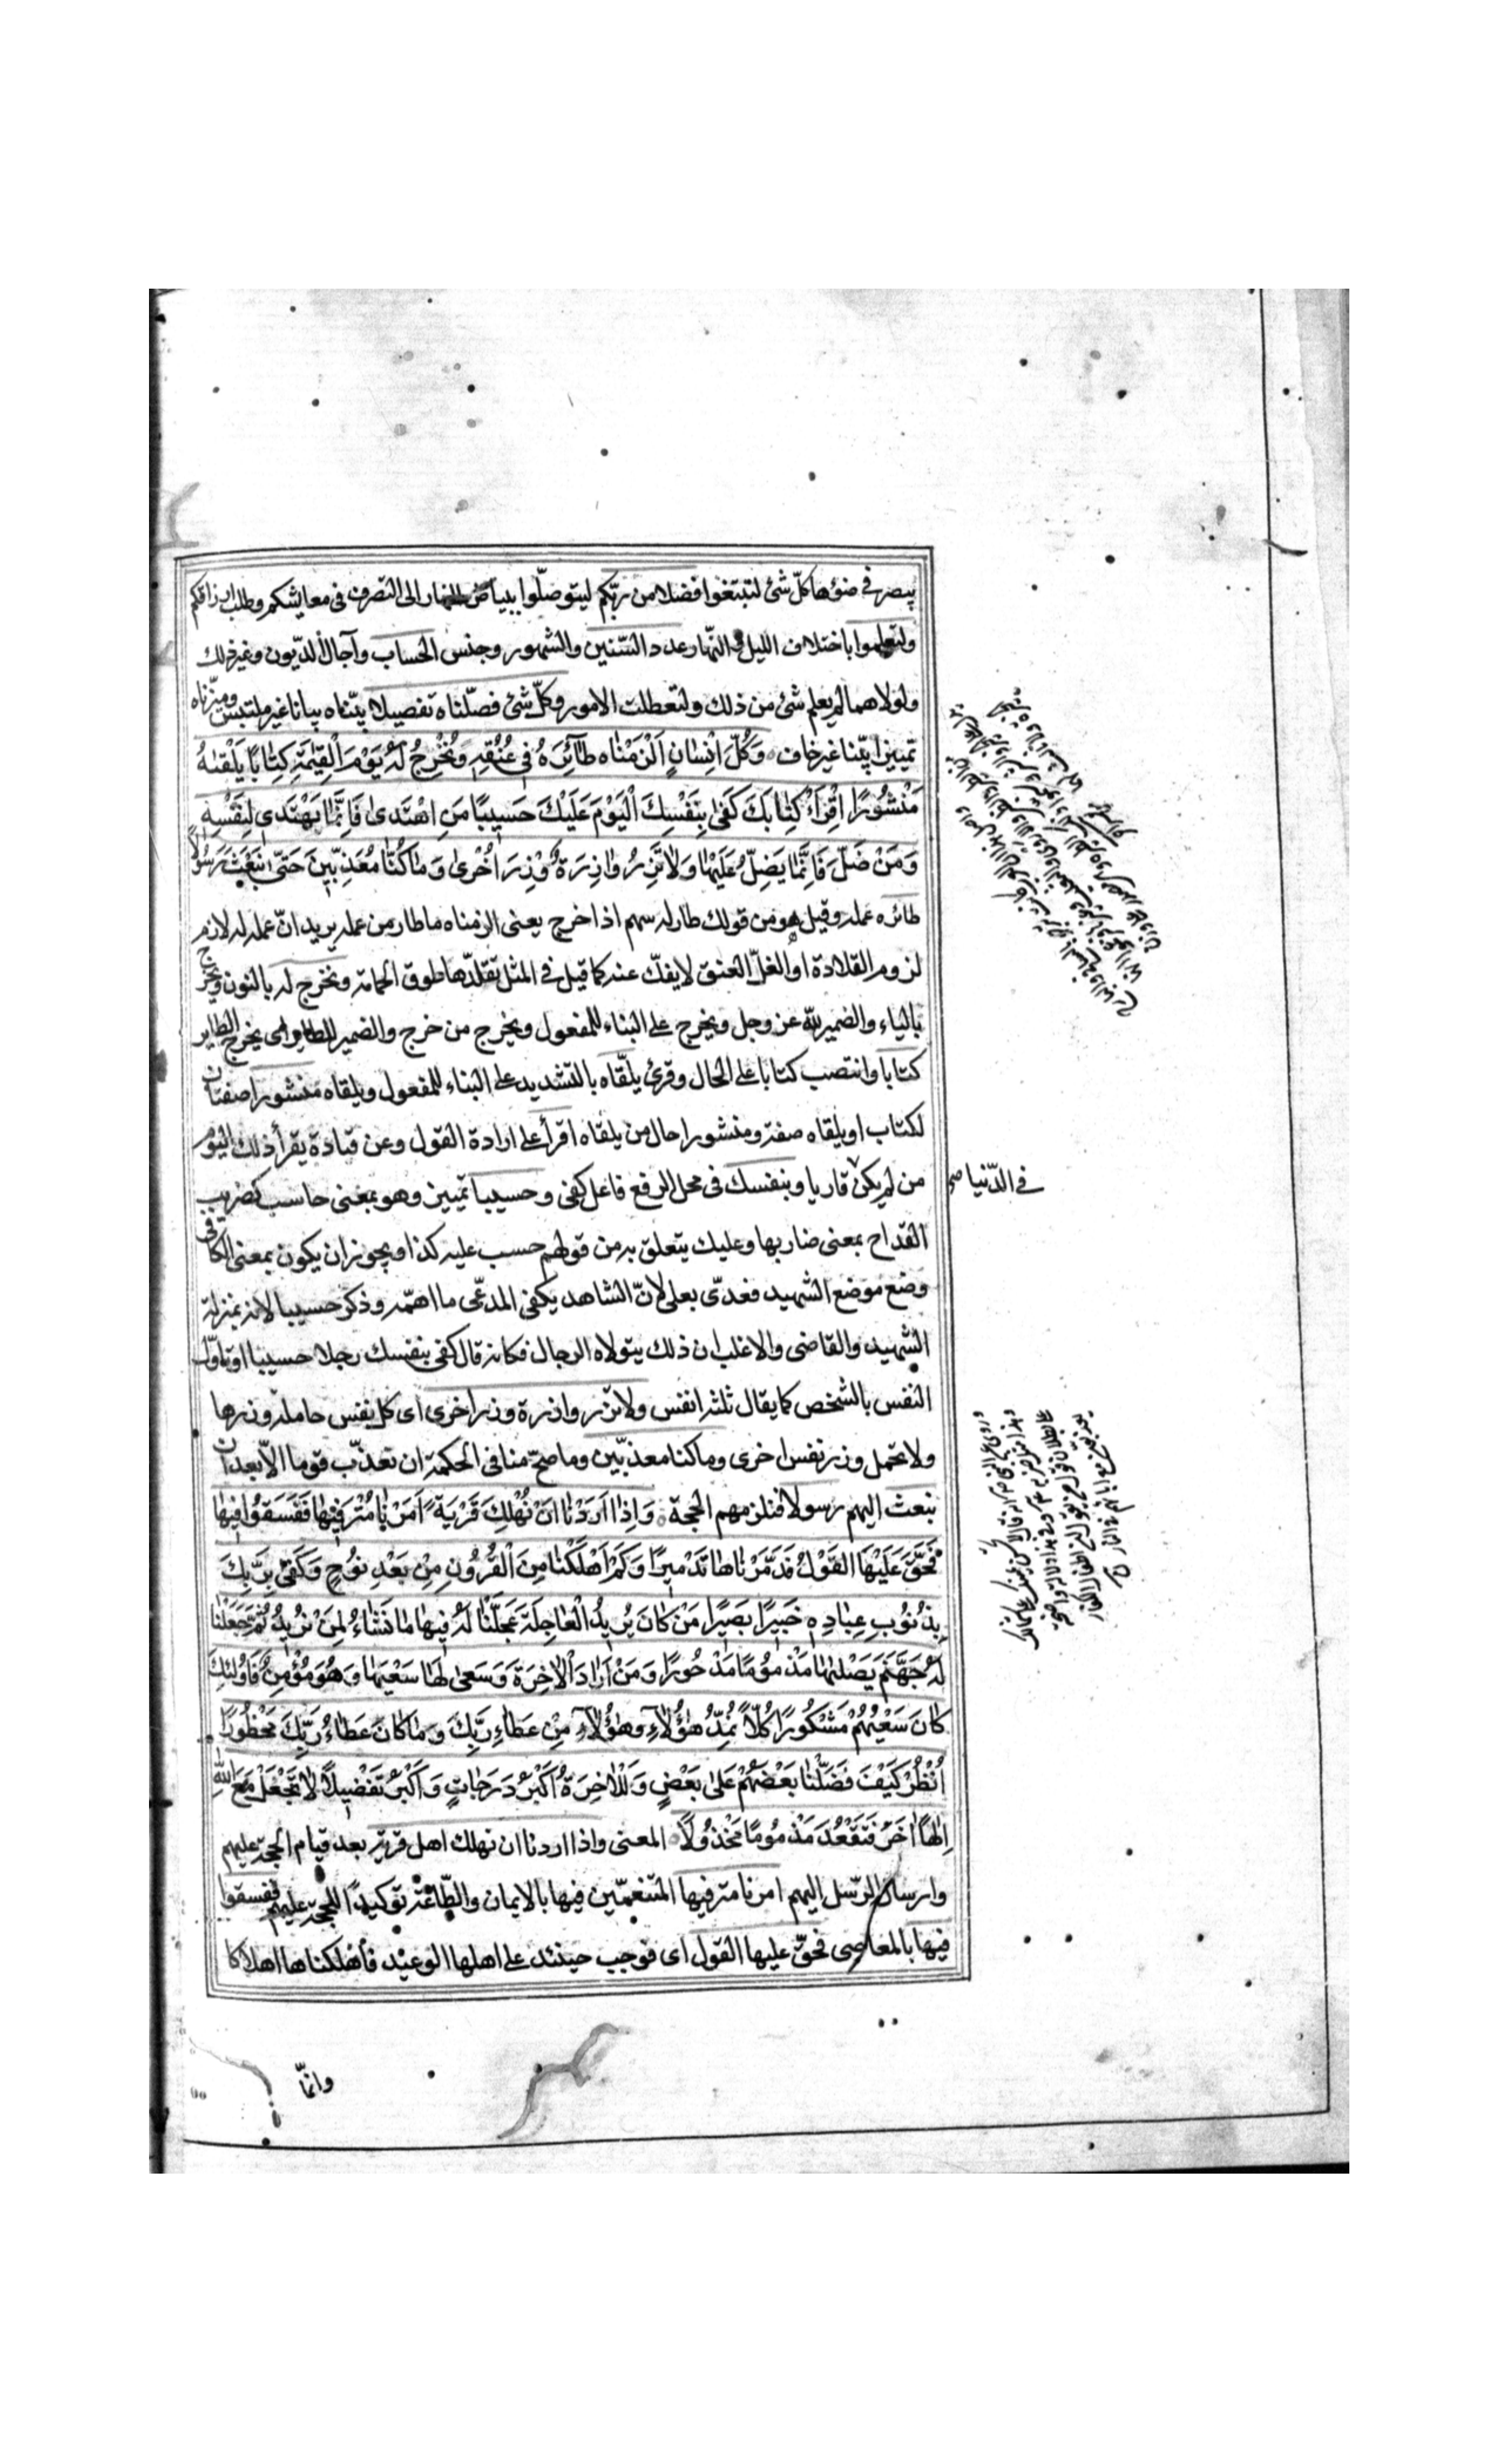 يبصر في ضوءها كلّ شئ لتبتغوا فضلا من ربّكم ليتوصّلوا ببياض النهار الى التصرف فى معايشكم وطلب ارزاقكم
ولتعلموا باختلاف الليل والنّهار عدد السّنين والشهور وجنس الحساب وآجال الديون وغير ذلك
ولولاهما لم يعلم شئ من ذلك ولتعطلت الامور وكلّ شئ فصّلناه تفصيلا بيّناه بيانا غير ملتبس وميّزناه
تمييزا بيّنا غير خاف وَكُلَّ اِنْسٰانٍ اَلْزَمْنٰاه طٰآئِرَهُ فِي عُنُقِهٖ وَنُخْرِجُ لَهُ يَوْمَ الْقِيٰمَةِ كِتٰابًا يَلْقٰيهُ
مَنْشُورًا اِقْرَأْ كِتٰابَكَ كَفىٰ بِنَفْسِكَ الْيَوْمَ عَلَيْكَ حَسيبًا مَنِ اهْتَدىٰ فَاِنَّمٰا يَهْتَدي لِنَفْسِهٖ
وَمَنْ ضَلَّ فَاِنَّمٰا يَضِلُّ عَلَيْهٰا وَلٰا تَزِرُ وٰازِرَةٌ وِزْرَ اُخْرىٰ وَمٰا كُنّٰا مُعَذِّبينَ حَتّىٰ نَبْعَثَ رَسُولًا
طائره عمله وقيل هو من قولك طار له سهم اذا خرج يعنى الزمناه ما طار من عمله يريد انّ عمله له لازم
لزوم القلادة او الغلّ العنق لا يفكّ عنه كما قيل فى المثل تقلّدها طوق الحمامة ونخرج له بالنون ويخرج
بالياء والضمير للّه عز وجل ويخرج على البناء للمفعول ويخرج من خرج والضمير للطاير اى يخرج الطاير
كتابا وانتصب كتابا على الحال وقرئ يلقّاه بالتشديد على البناء للمفعول ويلقاه منشورا صفتان
لكتاب او يلقاه صفة ومنشورا حال من يلقاه اقرأ على ارادة القول وعن قتادة يقرأ ذلك اليوم
من لم يكن قاريا وبنفسك فى محل الرفع فاعل كفى وحسيبا تمييز وهو بمعنى حاسب كضريب
فى الدّنيا صح
القداح بمعنى ضاربها وعليك يتعلق به من قولهم حسب عليه كذا ويجوز ان يكون بمعنى الكافى
وضع موضع الشهيد فعدّى بعلى لانّ الشاهد يكفى المدّعى ما اهمّه وذكر حسيبا لانه بمنزلة
الشهيد والقاضى والاغلب ان ذلك يتولاه الرجال فكانه قال كفى بنفسك رجلا حسيبا او تاوّل
النفس بالشخص كما يقال ثلثة انفس ولا تزر وازرة وزر اخرى اى كل نفس حاملة وزرها
ولا تحمل وزر نفس اخرى وما كنا معذّبين وما صحّ منا فى الحكمة ان نعذّب قوما الّا بعد ان
نبعث اليهم رسولا فنلزمهم الحجة وَاِذٰا اَرَدْنٰا اَنْ نُهْلِكَ قَرْيَةً اَمَرْنٰا مُتْرَفيهٰا فَفَسَقُوا فيهٰا
فَحَقَّ عَلَيْهَا الْقَوْلُ فَدَمَّرْنٰاهٰا تَدْميرًا وَكَمْ اَهْلَكْنٰا مِنَ الْقُرُونِ مِنْ بَعْدِ نُوحٍ وَكَفىٰ بِرَبِّكَ
بِذُنُوبِ عِبٰادِهٖ خَبيرًا بَصيرًا مَنْ كٰانَ يُريدُ الْعٰاجِلَةَ عَجَّلْنٰا لَهُ فيهٰا مٰا نَشٰاءُ لِمَنْ نُريدُ ثُمَّ جَعَلْنٰا
لَهُ جَهَنَّمَ يَصْلٰيهٰا مَذْمُومًا مَدْحُورًا وَمَنْ اَرٰادَ الْاٰخِرَةَ وَسَعىٰ لَهٰا سَعْيَهٰا وَهُوَ مُؤْمِنٌ فَاُولٰئِكَ
كٰانَ سَعْيُهُمْ مَشْكُورًا كُلّاً نُمِدُّ هٰؤُلٰاءِ وَهٰؤُلٰاءِ مِنْ عَطٰاءِ رَبِّكَ وَمٰا كٰانَ عَطٰاءُ رَبِّكَ مَحْظُورًا
اُنْظُرْ كَيْفَ فَضَّلْنٰا بَعْضَهُمْ عَلىٰ بَعْضٍ وَلَلْاٰخِرَةُ اَكْبَرُ دَرَجٰاتٍ وَاَكْبَرُ تَفْضيلًا لٰا تَجْعَلْ مَعَ اللّٰهِ
اِلٰهًا اٰخَرَ فَتَقْعُدَ مَذْمُومًا مَخْذُولًا المعنى واذا اردنا ان نهلك اهل قرية بعد قيام الحجة عليهم
وارسال الرّسل اليهم امرنا مترفيها المتنعمّين فيها بالايمان والطّاعة توكيدًا للحجّة عليهم ففسقوا
فيها بالمعاصى فحقّ عليها القول اى فوجب حينئذ على اهلها الوعيد فأهلكناها اهلاكا
وانمّا